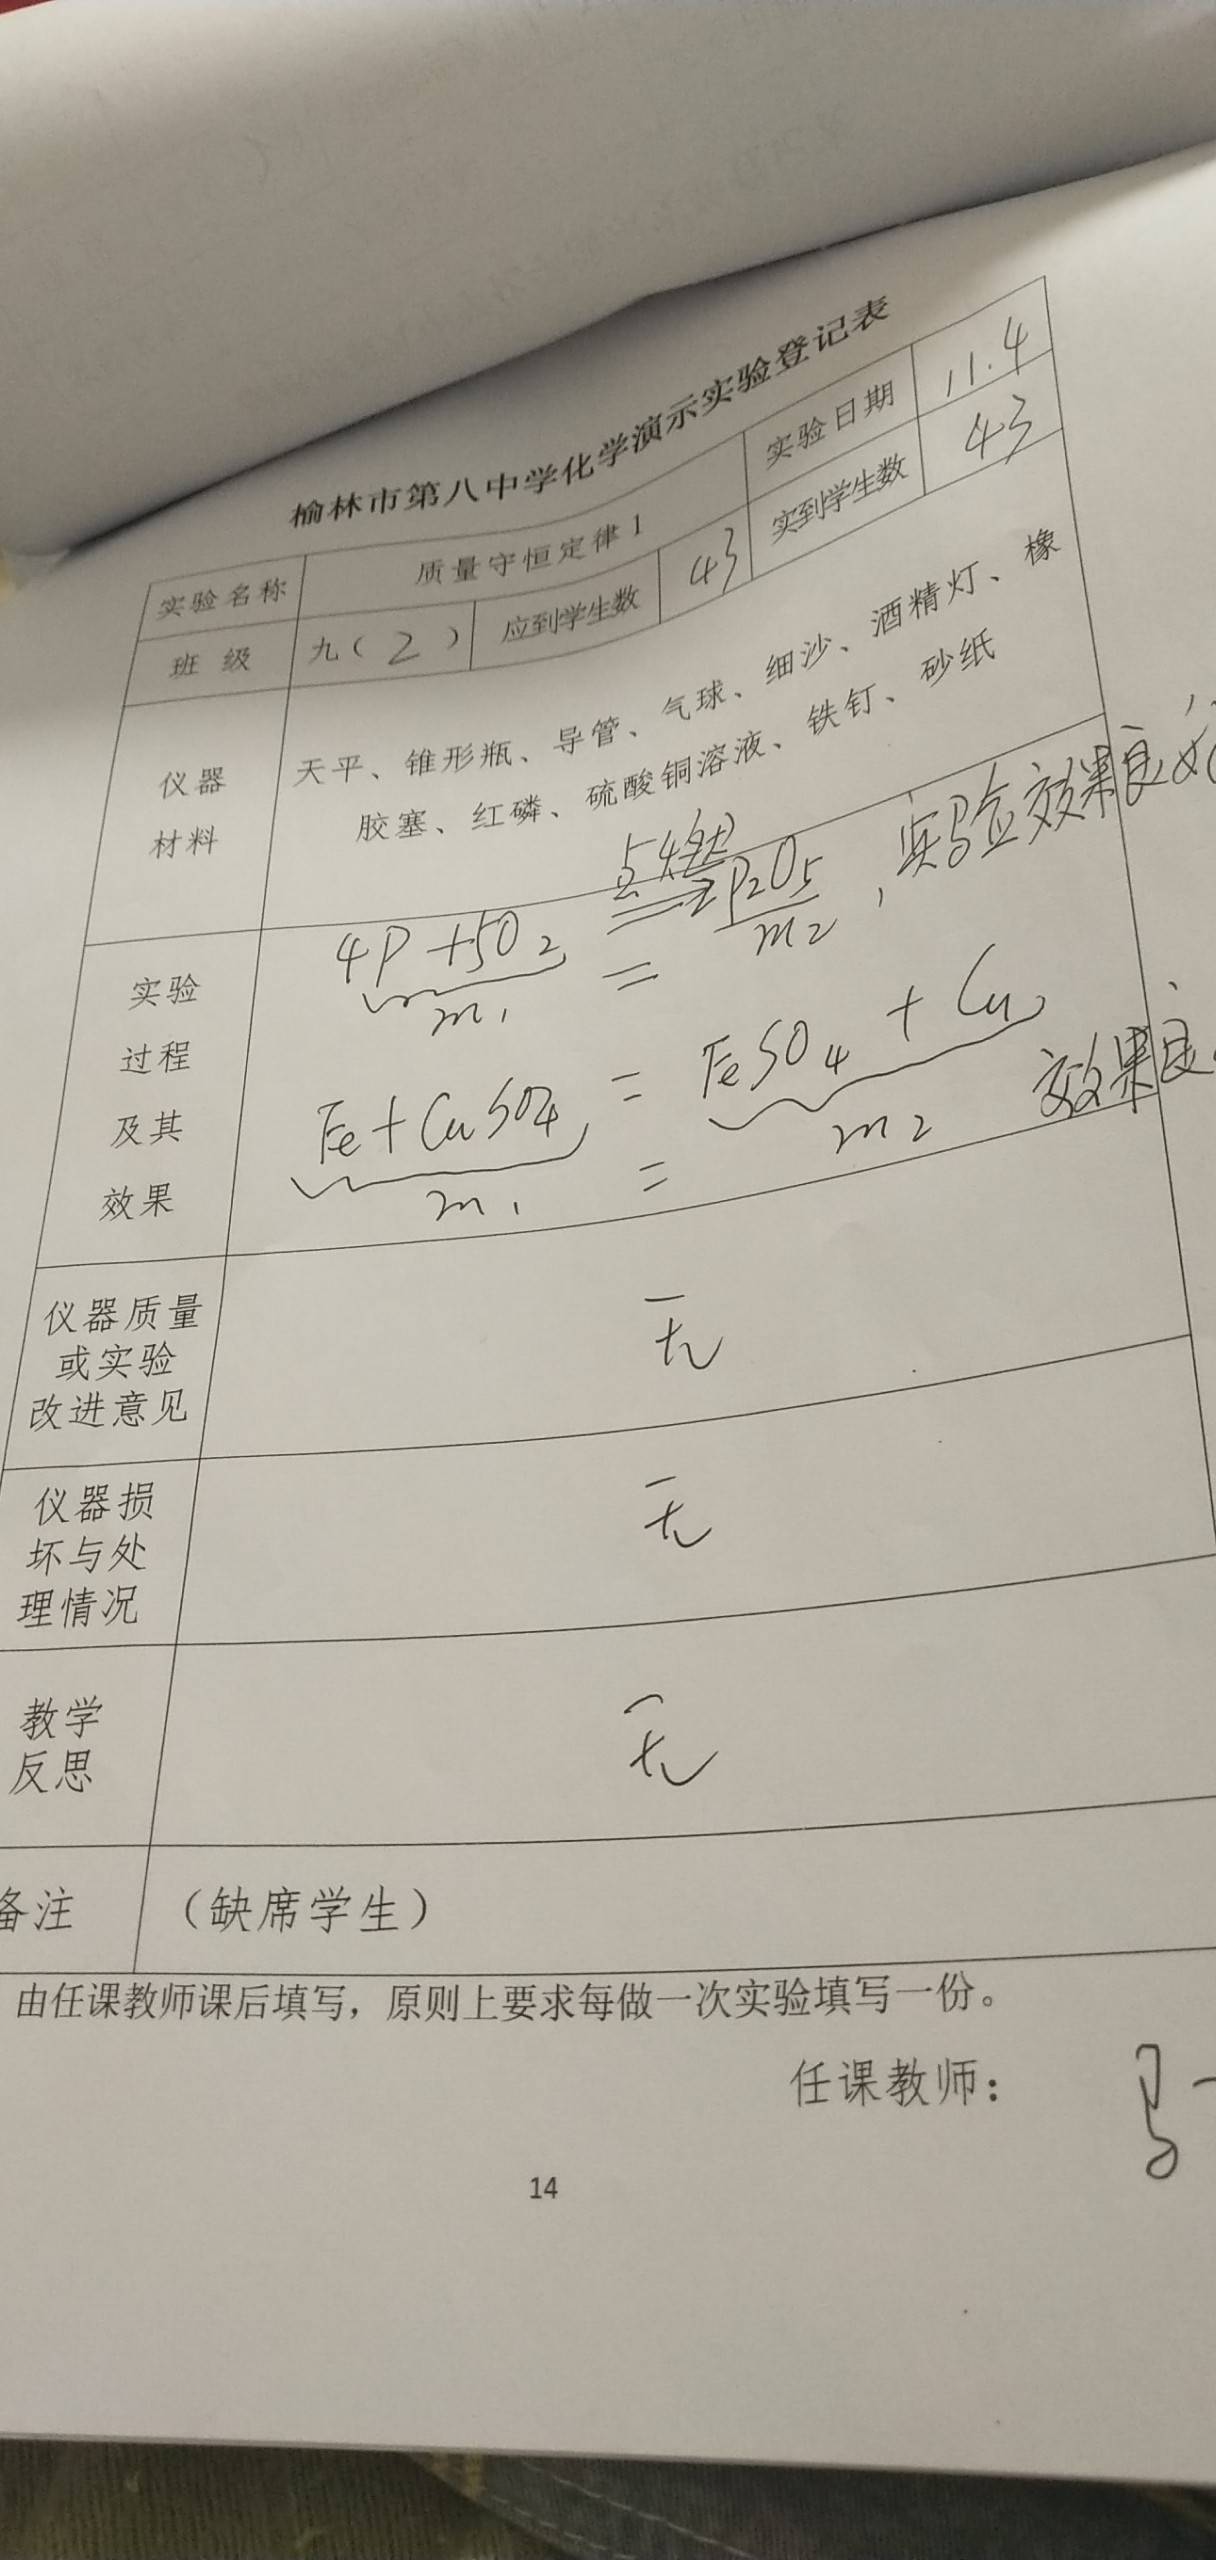 榆林市第八中学化学演示实验登记表
实验名称 质量守恒定律1 实验日期 11.4
班 级 九(2) 应到学生数 43 实到学生数 43
仪器
材料
天平、锥形瓶、导管、气球、细沙、酒精灯、橡
胶塞、红磷、硫酸铜溶液、铁钉、砂纸
实验
过程
及其
效果
点燃
4P+5O2 = 2P2O5,实验效果良好
m1 = m2
Fe+CuSO4 = FeSO4 + Cu 效果良
m1 = m2
仪器质量
或实验
改进意见
无
仪器损
坏与处
理情况
无
教学
反思
无
备注 (缺席学生)
由任课教师课后填写,原则上要求每做一次实验填写一份。
任课教师:
14